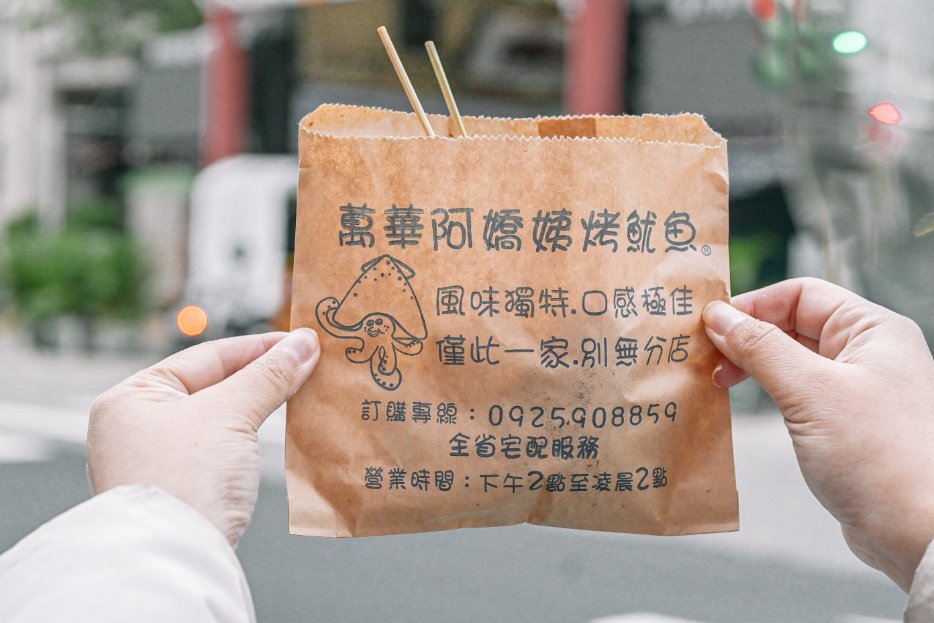 萬華阿嬌姨烤魷魚®
風味獨特.口感極佳
僅此一家.別無分店
訂購專線：0925.908859
全省宅配服務
營業時間：下午2點至凌晨2點